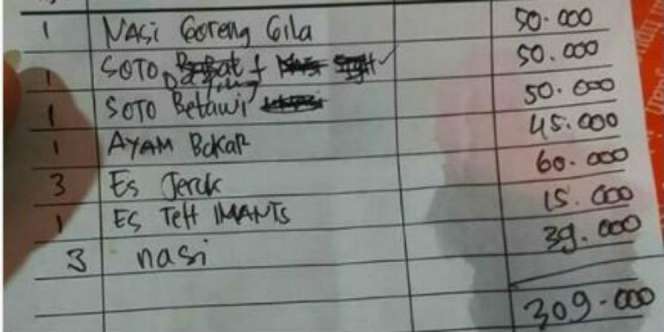 1 NASi Goreng Gila 50.000
1 SOTO Daging 50.000
1 SOTO Betawi 50.000
1 AYAM BaKaR 45.000
3 Es Jeruk 60.000
1 ES TeH MANIS 15.000
3 nasi 39.000
309.000